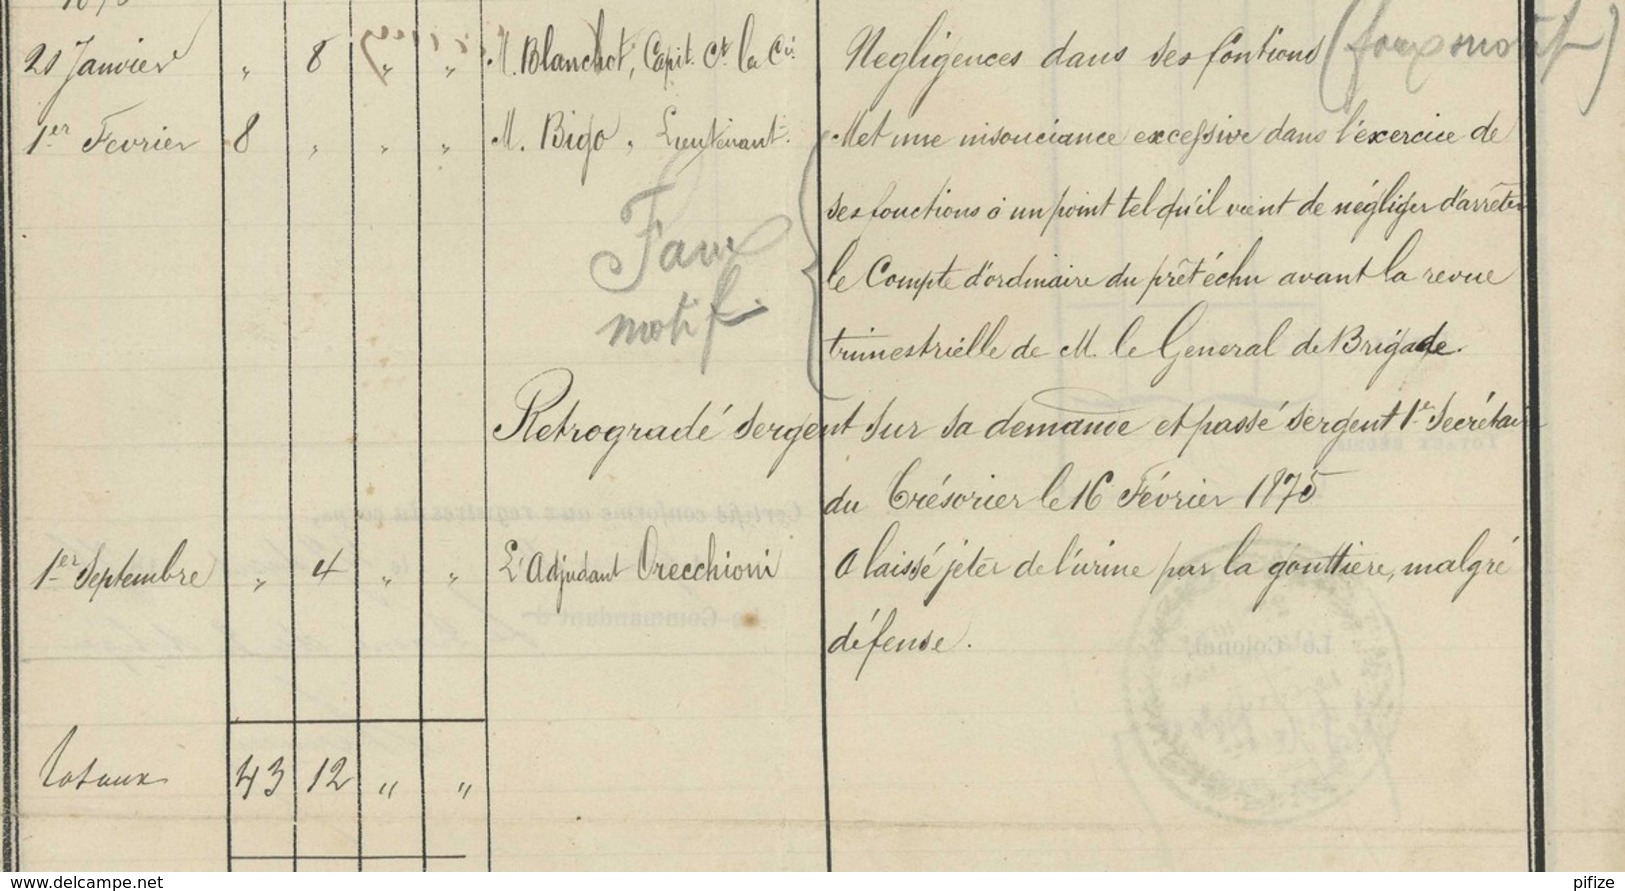 21 Janvier " 8 " " M. Blanchot, Capit. Ct la Cie Negligences dans ses fontions (faux motif)
1er Fevrier 8 " " " M. Bigo, Lieutenant. Met une insouciance excessive dans l'éxercice de
ses fonctions à un point tel qu'il vient de négliger d'arrêter
Faux
le Compte d'ordinaire du prêt échu avant la revue
motif.
trimestrielle de M. le General de Brigade.
Retrogradé sergent sur sa demande et passé sergent 1er Secrétaire
du Trésorier le 16 Février 1875
1er Septembre " 4 " " L'Adjudant Orecchioni A laissé jeter de l'urine par la gouttière, malgré
défense.
Totaux 43 12 " "
www.delcampe.net
pifize